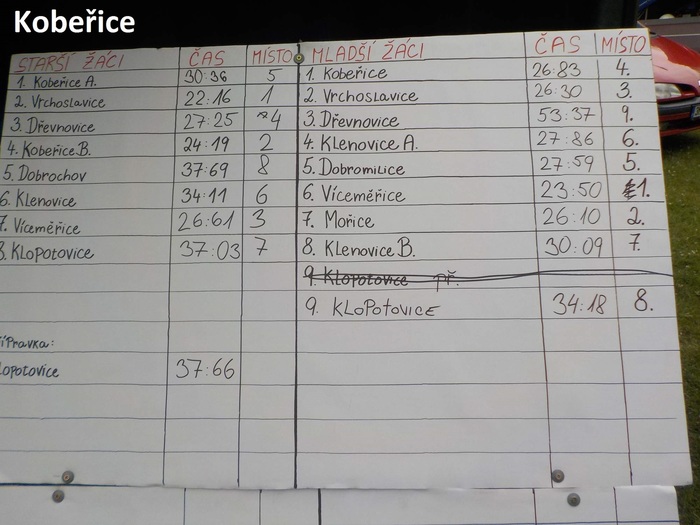 Kobeřice
STARŠÍ ŽÁCI ČAS MÍSTO MLADŠÍ ŽÁCI ČAS MÍSTO
1. Kobeřice A. 30:36 5 1. Kobeřice 26:83 4.
2. Vrchoslavice 22:16 1 2. Vrchoslavice 26:30 3.
3. Dřevnovice 27:25 4 3. Dřevnovice 53:37 9.
4. Kobeřice B. 24:19 2 4. Klenovice A. 27:86 6.
5. Dobrochov 37:69 8 5. Dobromilice 27:59 5.
6. Klenovice 34:11 6 6. Víceměřice 23:50 1.
7. Víceměřice 26:61 3 7. Mořice 26:10 2.
8. Klopotovice 37:03 7 8. Klenovice B. 30:09 7.
9. Klopotovice př.
9. KLoPotoVICE 34:18 8.
ípravka:
lopotovice 37:66